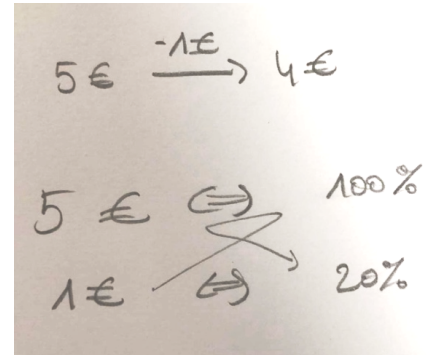 -1€
5€ → 4€
5 € ⇔ 100%
1€ ⇔ 20%